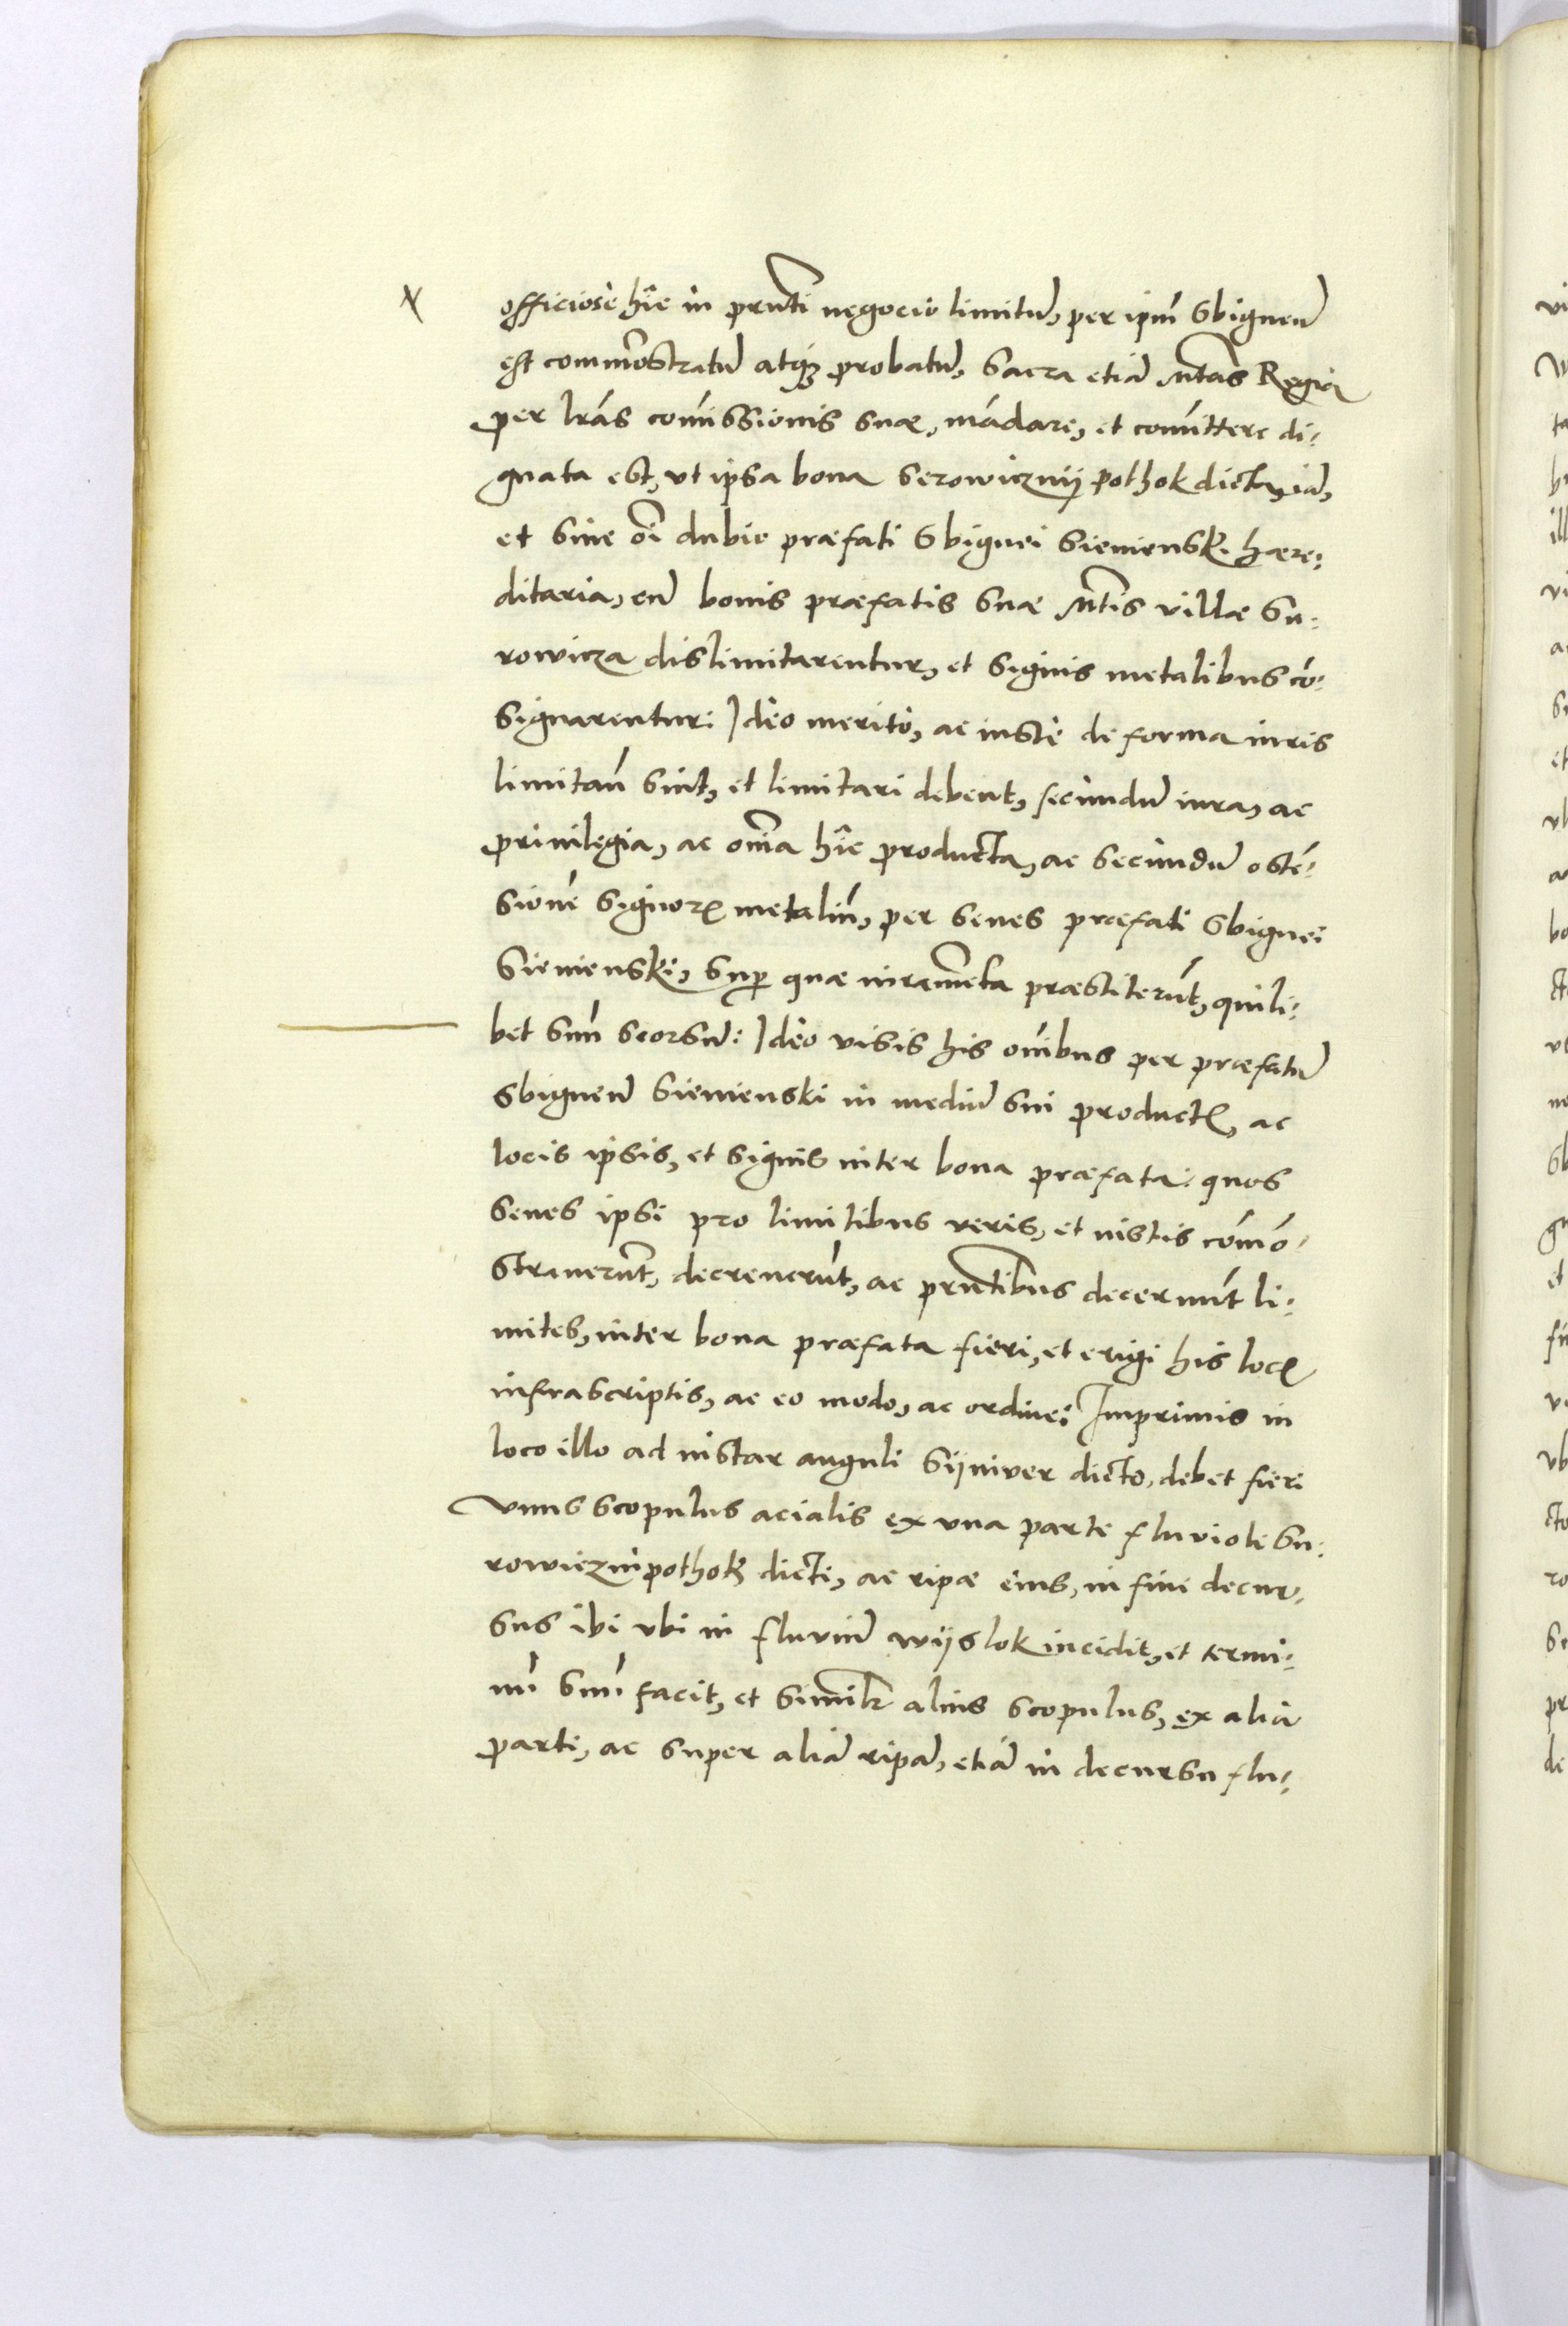 officiosè hîc in prnti negocio limitũ, per ipm̃ Sbigneũ
est commõstratũ atqȝ probatũ, Sacra etiã Mtas Regia
per lrãs com̃issionis suæ, mãdare, et com̃ittere di⸗
gnata est, vt ipsa bona Serowicznÿ pothok dicta, iã,
et sine oĩ dubio præfati Sbignei Sienienski hære⸗
ditaria, cũ bonis præfatis suæ Mtis villæ Su⸗
rowicza dislimitarentur, et signis metalibus cõ⸗
signarentur: Ideo meritò, ac iustè de forma iuris
limitañ sint, et limitari debent, secundũ iura, ac
priuilegia, ac om̃ia hîc producta, ac secundũ ostẽ⸗
sionẽ signorꝝ metaliũ, per senes præfati Sbignei
Sienienski, suꝑ quæ iuramẽta præstiterũt, quili⸗
bet suũ seorsũ: Ideo visis his om̃ibus per præfatũ
Sbigneũ Sienienski in mediũ sui productꝭ, ac
locis ipsis, et signis inter bona præfata: quos
senes ipsi pro limitibus veris, et iustis cõmõ⸗
strauerũt, decreuerũt, ac prntibus decernũt li⸗
mites, inter bona præfata fieri, et erigi his locꝭ
infrascriptis, ac eo modo, ac ordine: Imprimis in
loco illo ad instar anguli Sÿniver dicto, debet fieri
vnus scopulus acialis ex vna parte fluvioli Su⸗
rowiczni pothok dicti, ac ripæ eius, in fine decur⸗
sus ibi vbi in fluviũ wÿslok incidit, et termi⸗
nũ suũ facit, et similr alius scopulus, ex alia
parte, ac super aliã ripã, etiã in decursu flu⸗